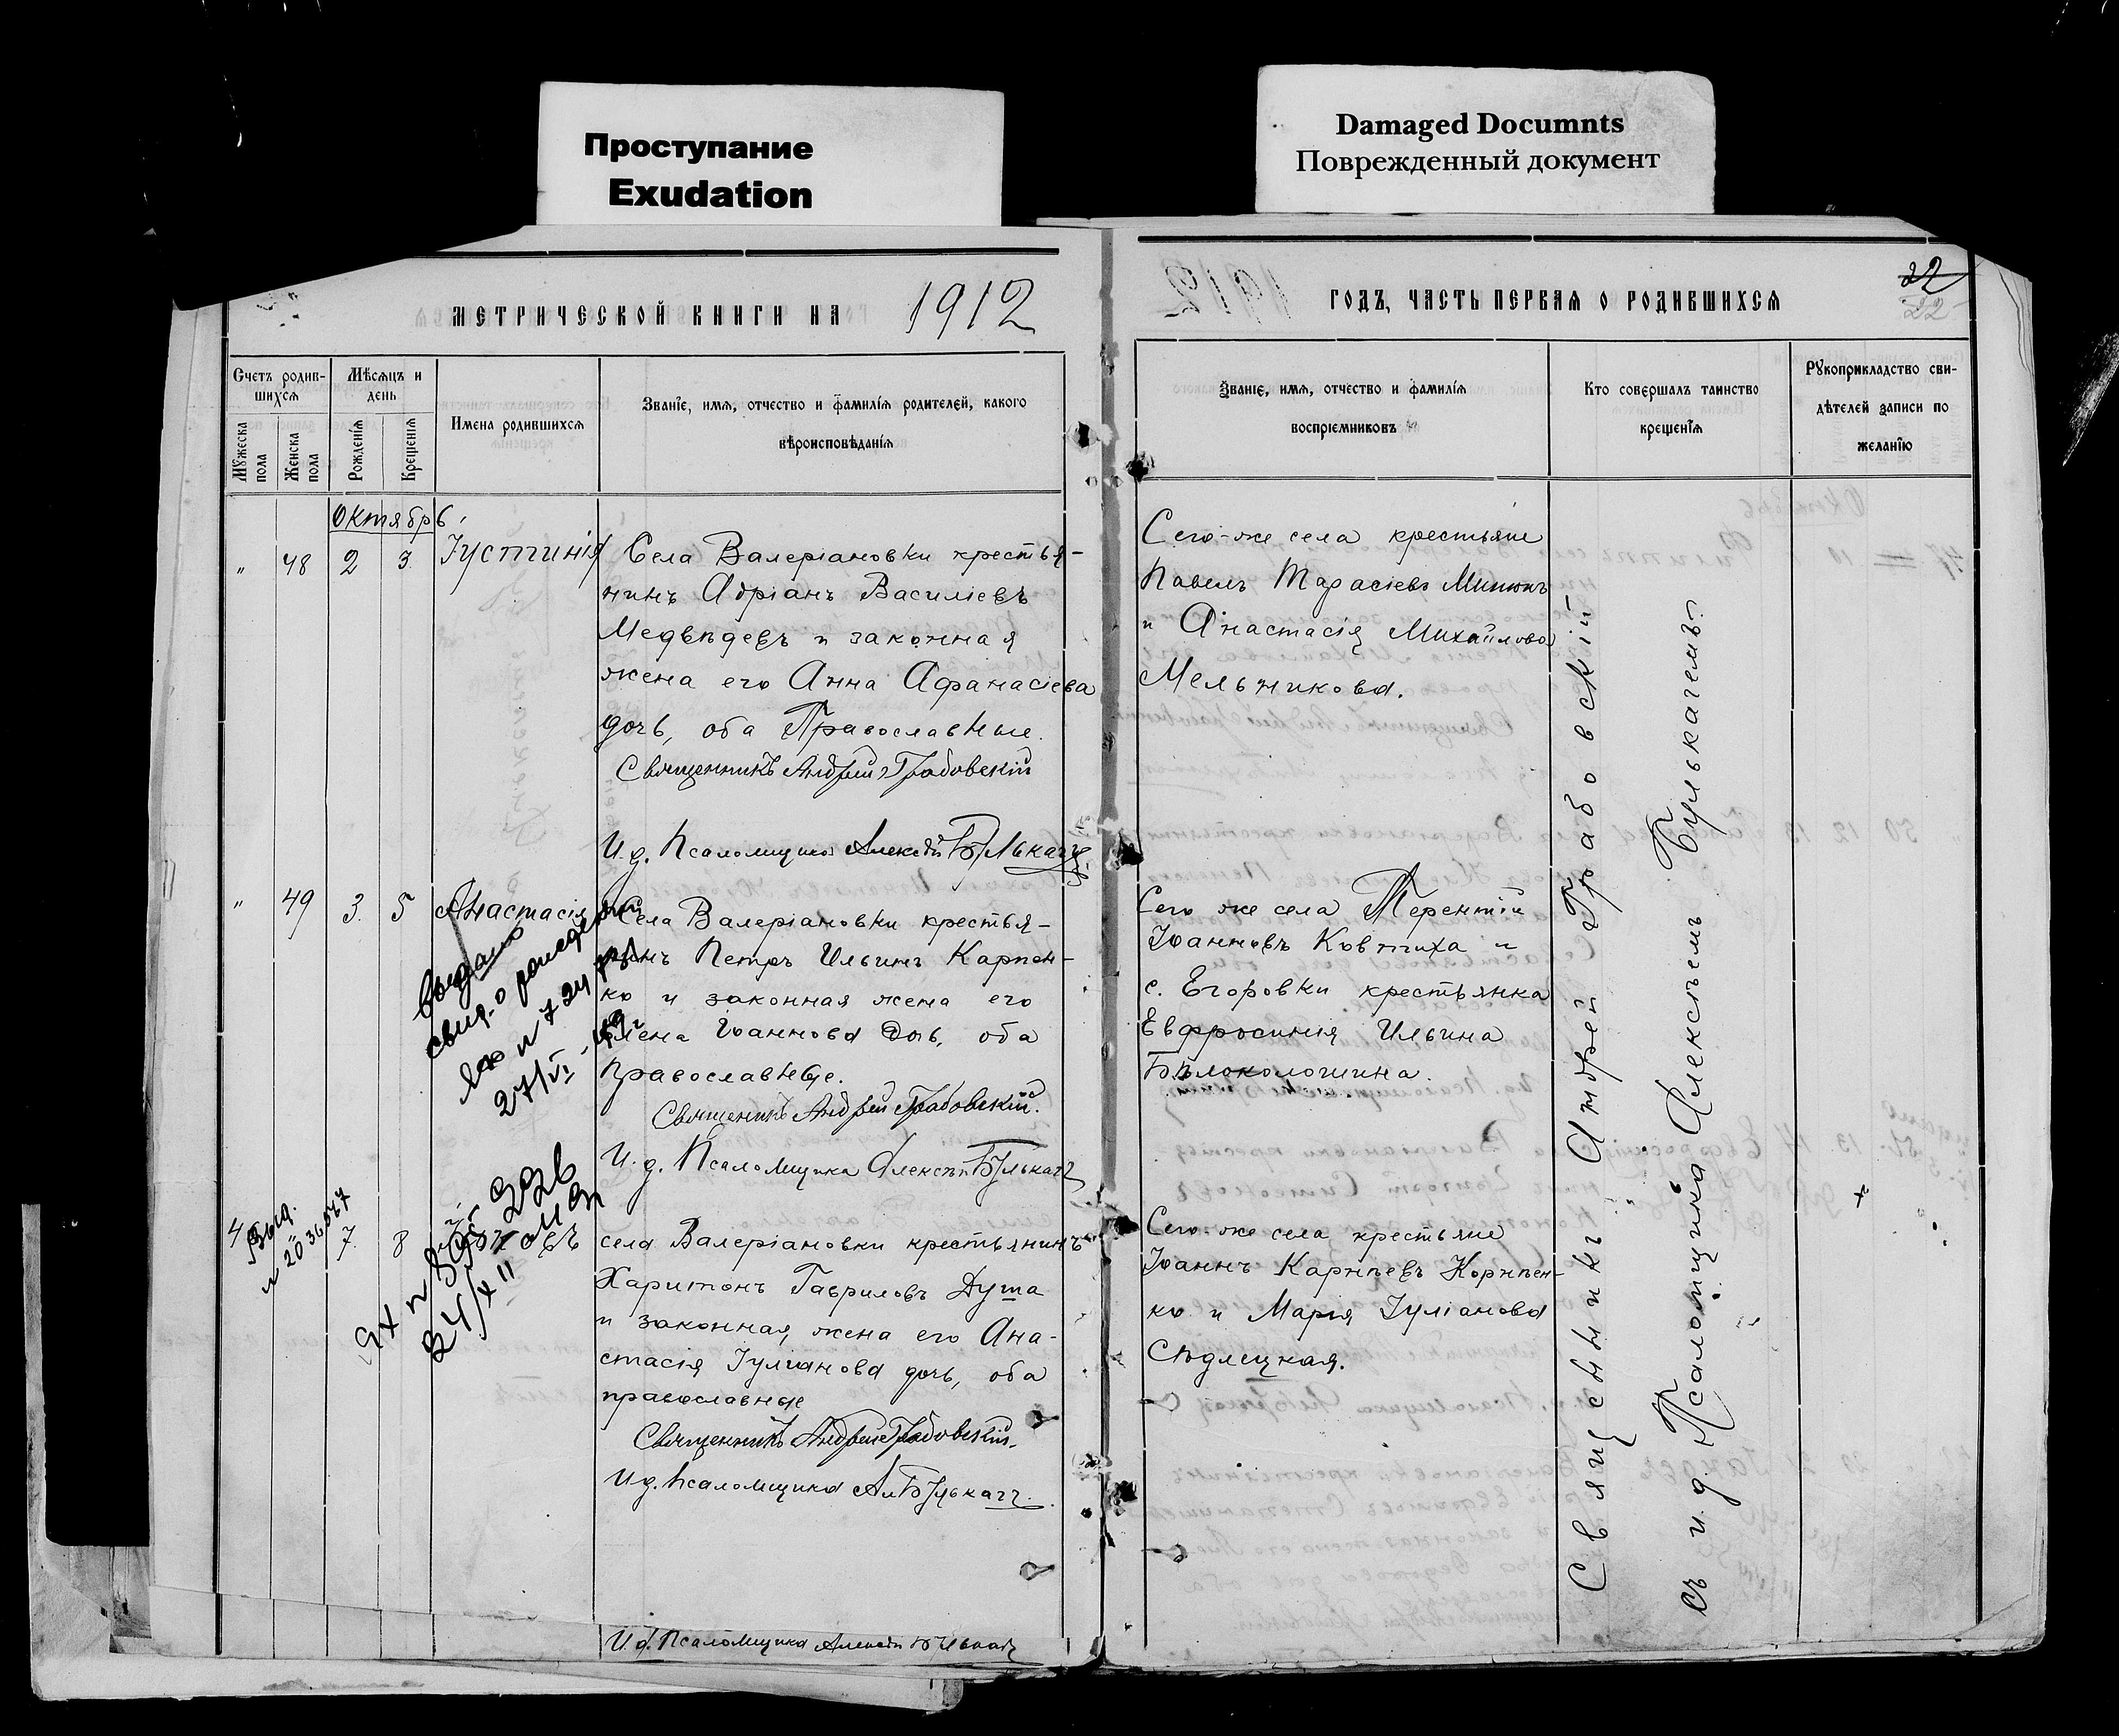 Проступание
Exudation
Damaged Documnts
Поврежденный документ
МЕТРИЧЕСКОЙ КНИГИ НА 1912
Счетъ родив-
шихся
Мѣсяцъ и
день
Имена родившихся
Званіе, имя, отчество и фамилія родителей, какого
вѣроисповѣданія
Мужеска
пола
Женска
пола
Рожденія
Крещенія
Октябрь
" 48 2 3 Іустинія
Села Валеріановки крестья-
нинъ Адріанъ Василіевъ
Медвѣдевъ и законная
жена его Анна Афанасіева
дочь, оба Православные.
Священникъ Андрей Грабовскій
И. д. Псаломщика Алексѣй Булькачъ
" 49 3 5 Анастасія
Села Валеріановки крестья-
нинъ Петръ Ильинъ Карпен-
ко и законная жена его
Іоаннова дочь, оба
Православные.
Священникъ Андрей Грабовскій.
И. д. Псаломщика Алексѣй Булькачъ
выдано
свид. о рождении
27/VI
Выд.
7. 8
24/XII
села Валеріановки крестьянинъ
Харитонъ Гавриловъ Душа
и законная жена его Ана-
стасія Іуліанова дочь, оба
православные
Священникъ Андрей Грабовскій.
И д. Псаломщика Ал Булькачъ.
И. д. Псаломщика Алексѣй Булькачъ
22
22
ГОДЪ, ЧАСТЬ ПЕРВАЯ О РОДИВШИХСЯ
Званіе, имя, отчество и фамилія
воспріемниковъ
Кто совершалъ таинство
крещенія
Рукоприкладство сви-
дѣтелей записи по
желанію
Сего-же села крестьяне
Павелъ Тарасіевъ
и Анастасія Михайлова
Мельникова.
Сего же села Терентій
Іоанновъ Ковтиха и
с. Егоровки крестьянка
Евфросинія Ильина
Сего-же села крестьяне
Іоаннъ Карпѣевъ Корнѣен-
ко и Марія Іуліанова
Сѣдлецкая.
Священникъ Андрей Грабовскій
съ и. д. Псаломщика Алексѣемъ Булькачемъ.